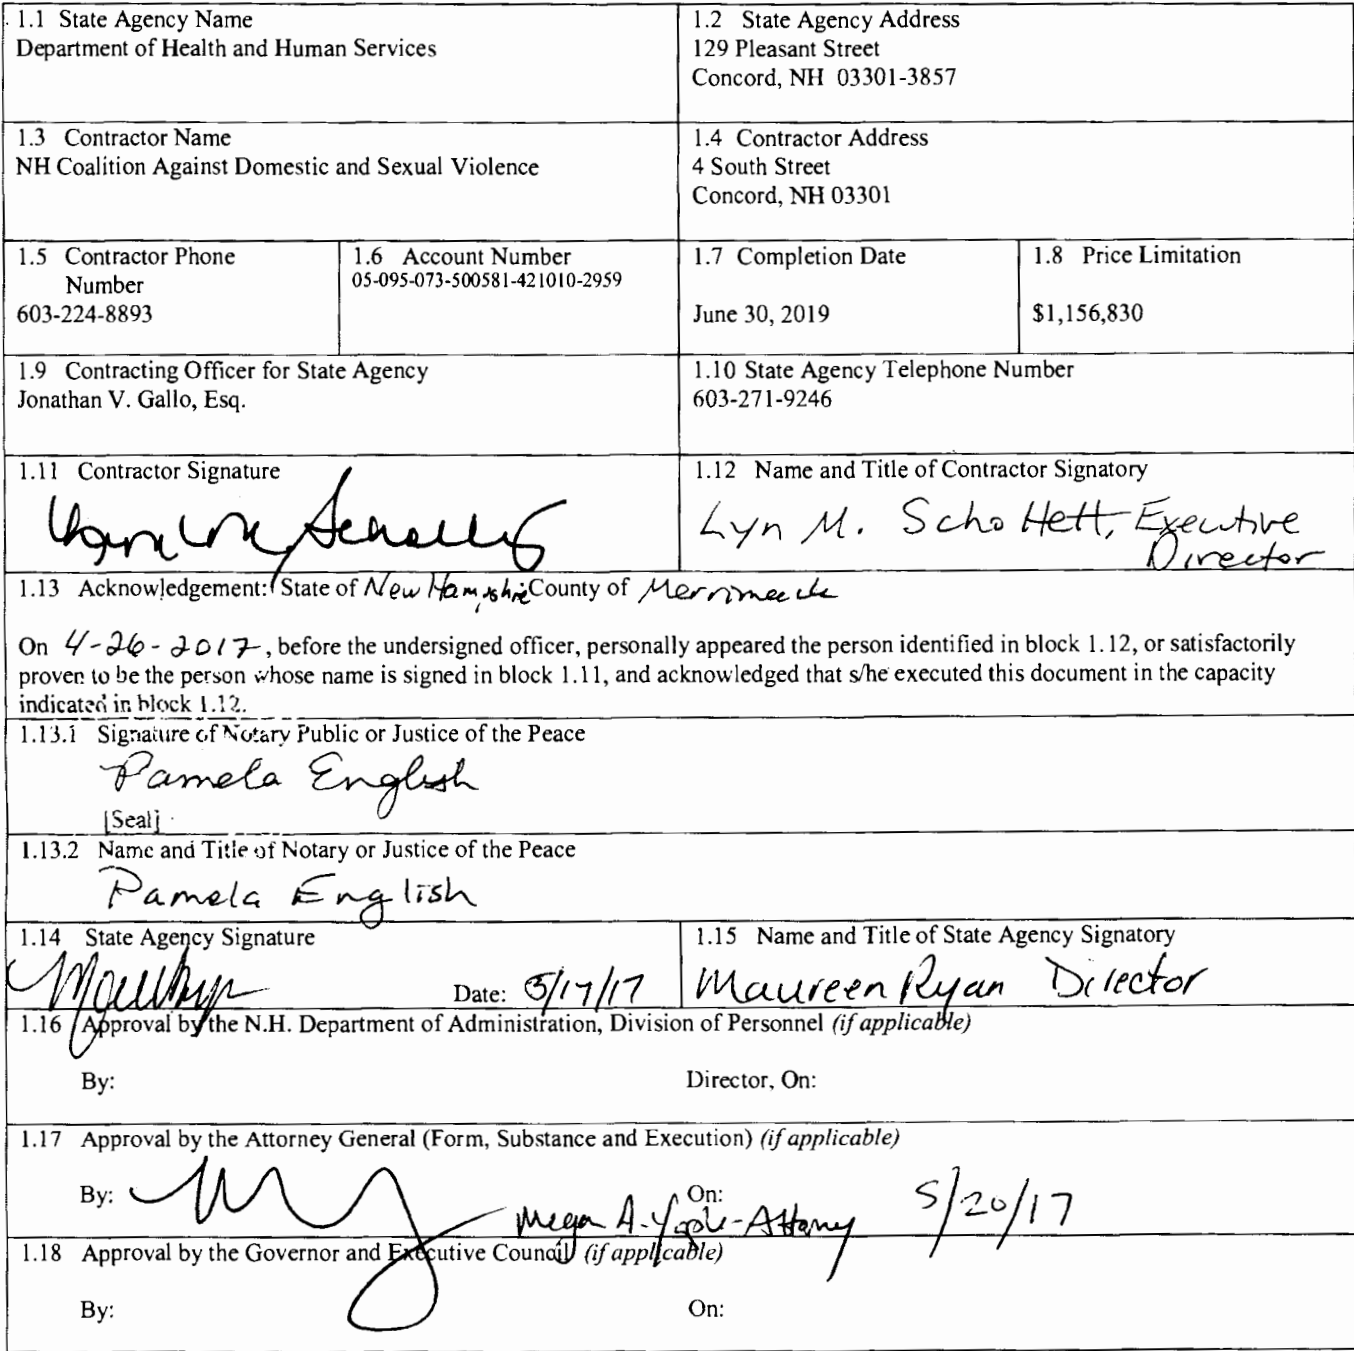 1.1 State Agency Name
Department of Health and Human Services
1.2 State Agency Address
129 Pleasant Street
Concord, NH 03301-3857
1.3 Contractor Name
NH Coalition Against Domestic and Sexual Violence
1.4 Contractor Address
4 South Street
Concord, NH 03301
1.5 Contractor Phone
Number
603-224-8893
1.6 Account Number
05-095-073-500581-421010-2959
1.7 Completion Date
June 30, 2019
1.8 Price Limitation
$1,156,830
1.9 Contracting Officer for State Agency
Jonathan V. Gallo, Esq.
1.10 State Agency Telephone Number
603-271-9246
1.11 Contractor Signature
1.12 Name and Title of Contractor Signatory
Lyn M. Schollett, Executive
Director
1.13 Acknowledgement: State of New Hampshire County of Merrimack
On 4-26-2017, before the undersigned officer, personally appeared the person identified in block 1.12, or satisfactorily
proven to be the person whose name is signed in block 1.11, and acknowledged that s/he executed this document in the capacity
indicated in block 1.12.
1.13.1 Signature of Notary Public or Justice of the Peace
Pamela English
[Seal]
1.13.2 Name and Title of Notary or Justice of the Peace
Pamela English
1.14 State Agency Signature
Date: 5/17/17
1.15 Name and Title of State Agency Signatory
Maureen Ryan Director
1.16 Approval by the N.H. Department of Administration, Division of Personnel (if applicable)
By:
Director, On:
1.17 Approval by the Attorney General (Form, Substance and Execution) (if applicable)
By:
On:
Megan A. - Attorney 5/20/17
1.18 Approval by the Governor and Executive Council (if applicable)
By:
On: